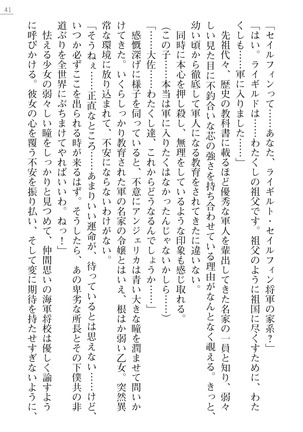 41
「セイルフィンって……あなた、ライギルト・セイルフィン将軍の家系?」
「はい。ライギルドは……わたくしの祖父です。祖父のように祖国に尽くすために、わた
くしも……軍に入りました……」
先祖代々、歴史の教科書に載るほど優秀な軍人を輩出してきた名家の一員と知り、弱々
しい見た目に不釣合いな芯の強さを持ち合わせている理由がなんとなく覗える。きっと、
幼い頃から徹底して軍人になる教育をされてきたに違いない。
同時に本心を押し殺し、無理をしているような印象も感じ取れる。
(この子……本当は軍に入りたくはなかったんじゃないかしら……)
「……大佐……わたくし達、これからどうなるんでしょうか……」
感慨深げに様子を伺っていると、不意にアンジェリカは青い大きな瞳を潤ませて問いか
けてきた。いくらしっかり教育された軍の名家の令嬢とはいえ、根はか弱い乙女。突然異
常な環境に放り込まれて、不安にならないわけがない。
「そうねぇ……正直なところ……あまりいい運命が、待っているとは思えない……けど、
いつか必ずここを出られる時が来るはず。そうしたら、あの卑劣な所長とその下僕共の非
道ぶりを全世界にぶちまけてやればいいわ。ねっ!」
怯える少女の弱々しい瞳をしっかりと見つめて、仲間思いの海軍将校は優しく諭すよう
に呼びかける。彼女の心を覆う不安を振り払い、そして変に期待を持たせすぎないように、